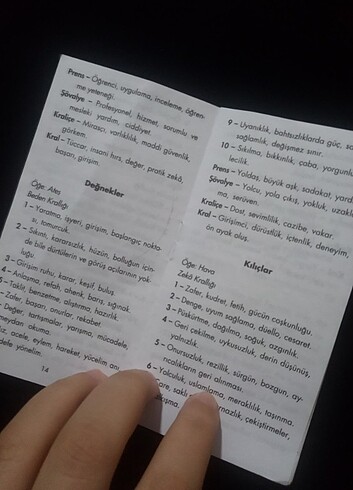 Prens – Öğrenci, uygulama, inceleme, öğren-
me yeteneği.
Şövalye – Profesyonel, hizmet, sorumlu ve
mesleki yardım, ciddiyet.
Kraliçe – Mirasçı, varlıklılık, maddi güvenlik,
görkem.
Kral – Tüccar, insani hırs, değer, pratik zekâ,
başarı, girişim.
Değnekler
Öge: Ateş
Beden Krallığı
1 – Yaratma, işyeri, girişim, başlangıç nokta-
sı, tomurcuk.
2 – Sıkıntı, kararsızlık, hüzün, bolluğun için-
de bile dürtülerin ve görüş açılarının yok-
luğu
3 – Girişim ruhu, karar, keşif, bulus.
4 – Anlaşma, refah, ahenk, barış, sığınak.
5 – Taklit, benzetme, alıştırma, hazırlık.
– Zafer, başarı, onurlar, rekabet
Değer, tartışmalar, yarışma, mücadele,
meydan okuma.
acele, eylem, hareket, yücelim,
yönelim.
14
9 – Uyanıklık, bahtsızlıklarda güç, sa
sağlamlık, değişmez sınır.
10 – Sıkılma, bıkkınlık, çaba, yorgunlu
lecilik.
Prens – Yoldaş, büyük aşk, sadakat, yard
Şövalye – Yolcu, yola çıkış, yokluk, uzakl
ma, serüven.
Kraliçe – Dost, sevimlilik, cazibe, vakar.
Kral – Girişimci, dürüstlük, içtenlik, deneyim,
ön ayak oluş.
Kılıçlar
Öge: Hava
Zekâ Krallığı
1 – Zafer, kudret, fetih, gücün coşkunluğu.
2 – Denge, uyum sağlama, düello, cesaret.
3 – Püskürtme, dağılma, soğuk, azgınlık.
4 – Geri çekilme, uykusuzluk, derin düşünüş,
yalnızlık.
5 – Onursuzluk, rezillik, sürgün, bozgun, ay-
rıcalıkların geri alınması.
6 – Yolculuk, uslamlama, meraklılık, taşınma.
Çare, saklı kurnazlık, çekiştirmeler,